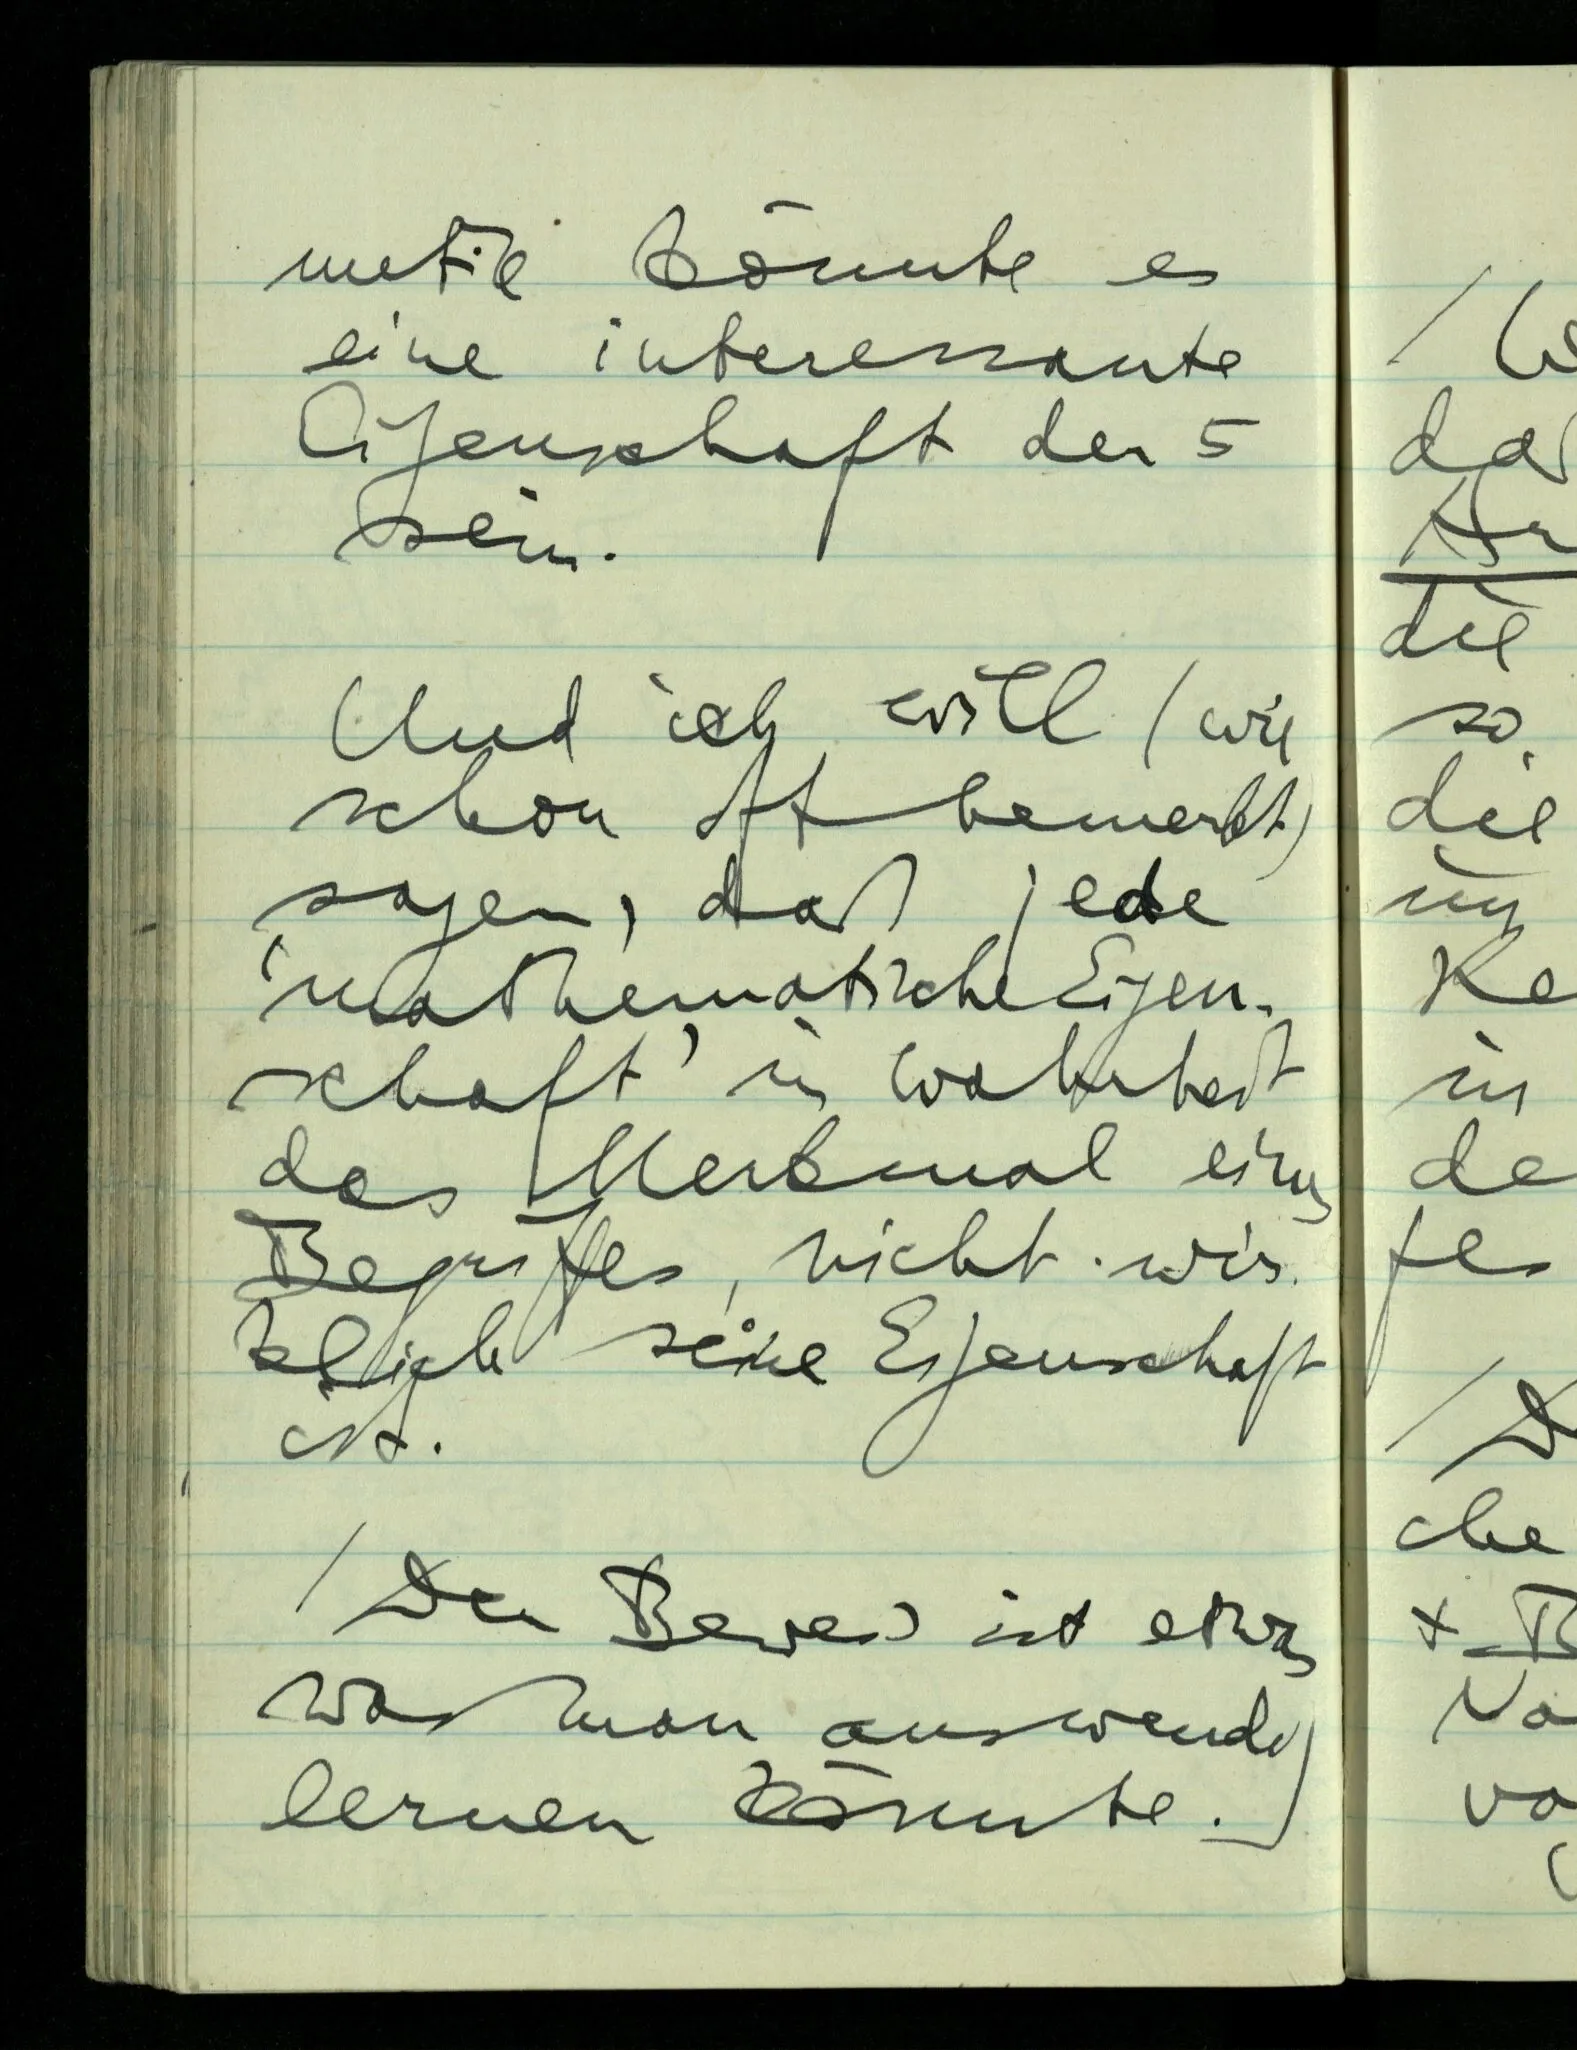 metik könnte es
eine interessante
Eigenschaft der 5
sein.
Und ich will (wie
schon oft bemerkt)
sagen, daß jede
'mathematische Eigen-
schaft' in Wahrheit
das Merkmal eines
Begriffes, nicht wir-
klich seine Eigenschaft
ist.
/ Der Beweis ist etwas
was man auswendig
lernen könnte.
/ We
daß
Ar
die
so
die
un
Ke
in
de
fes
/ D
che
+ B
No
vo